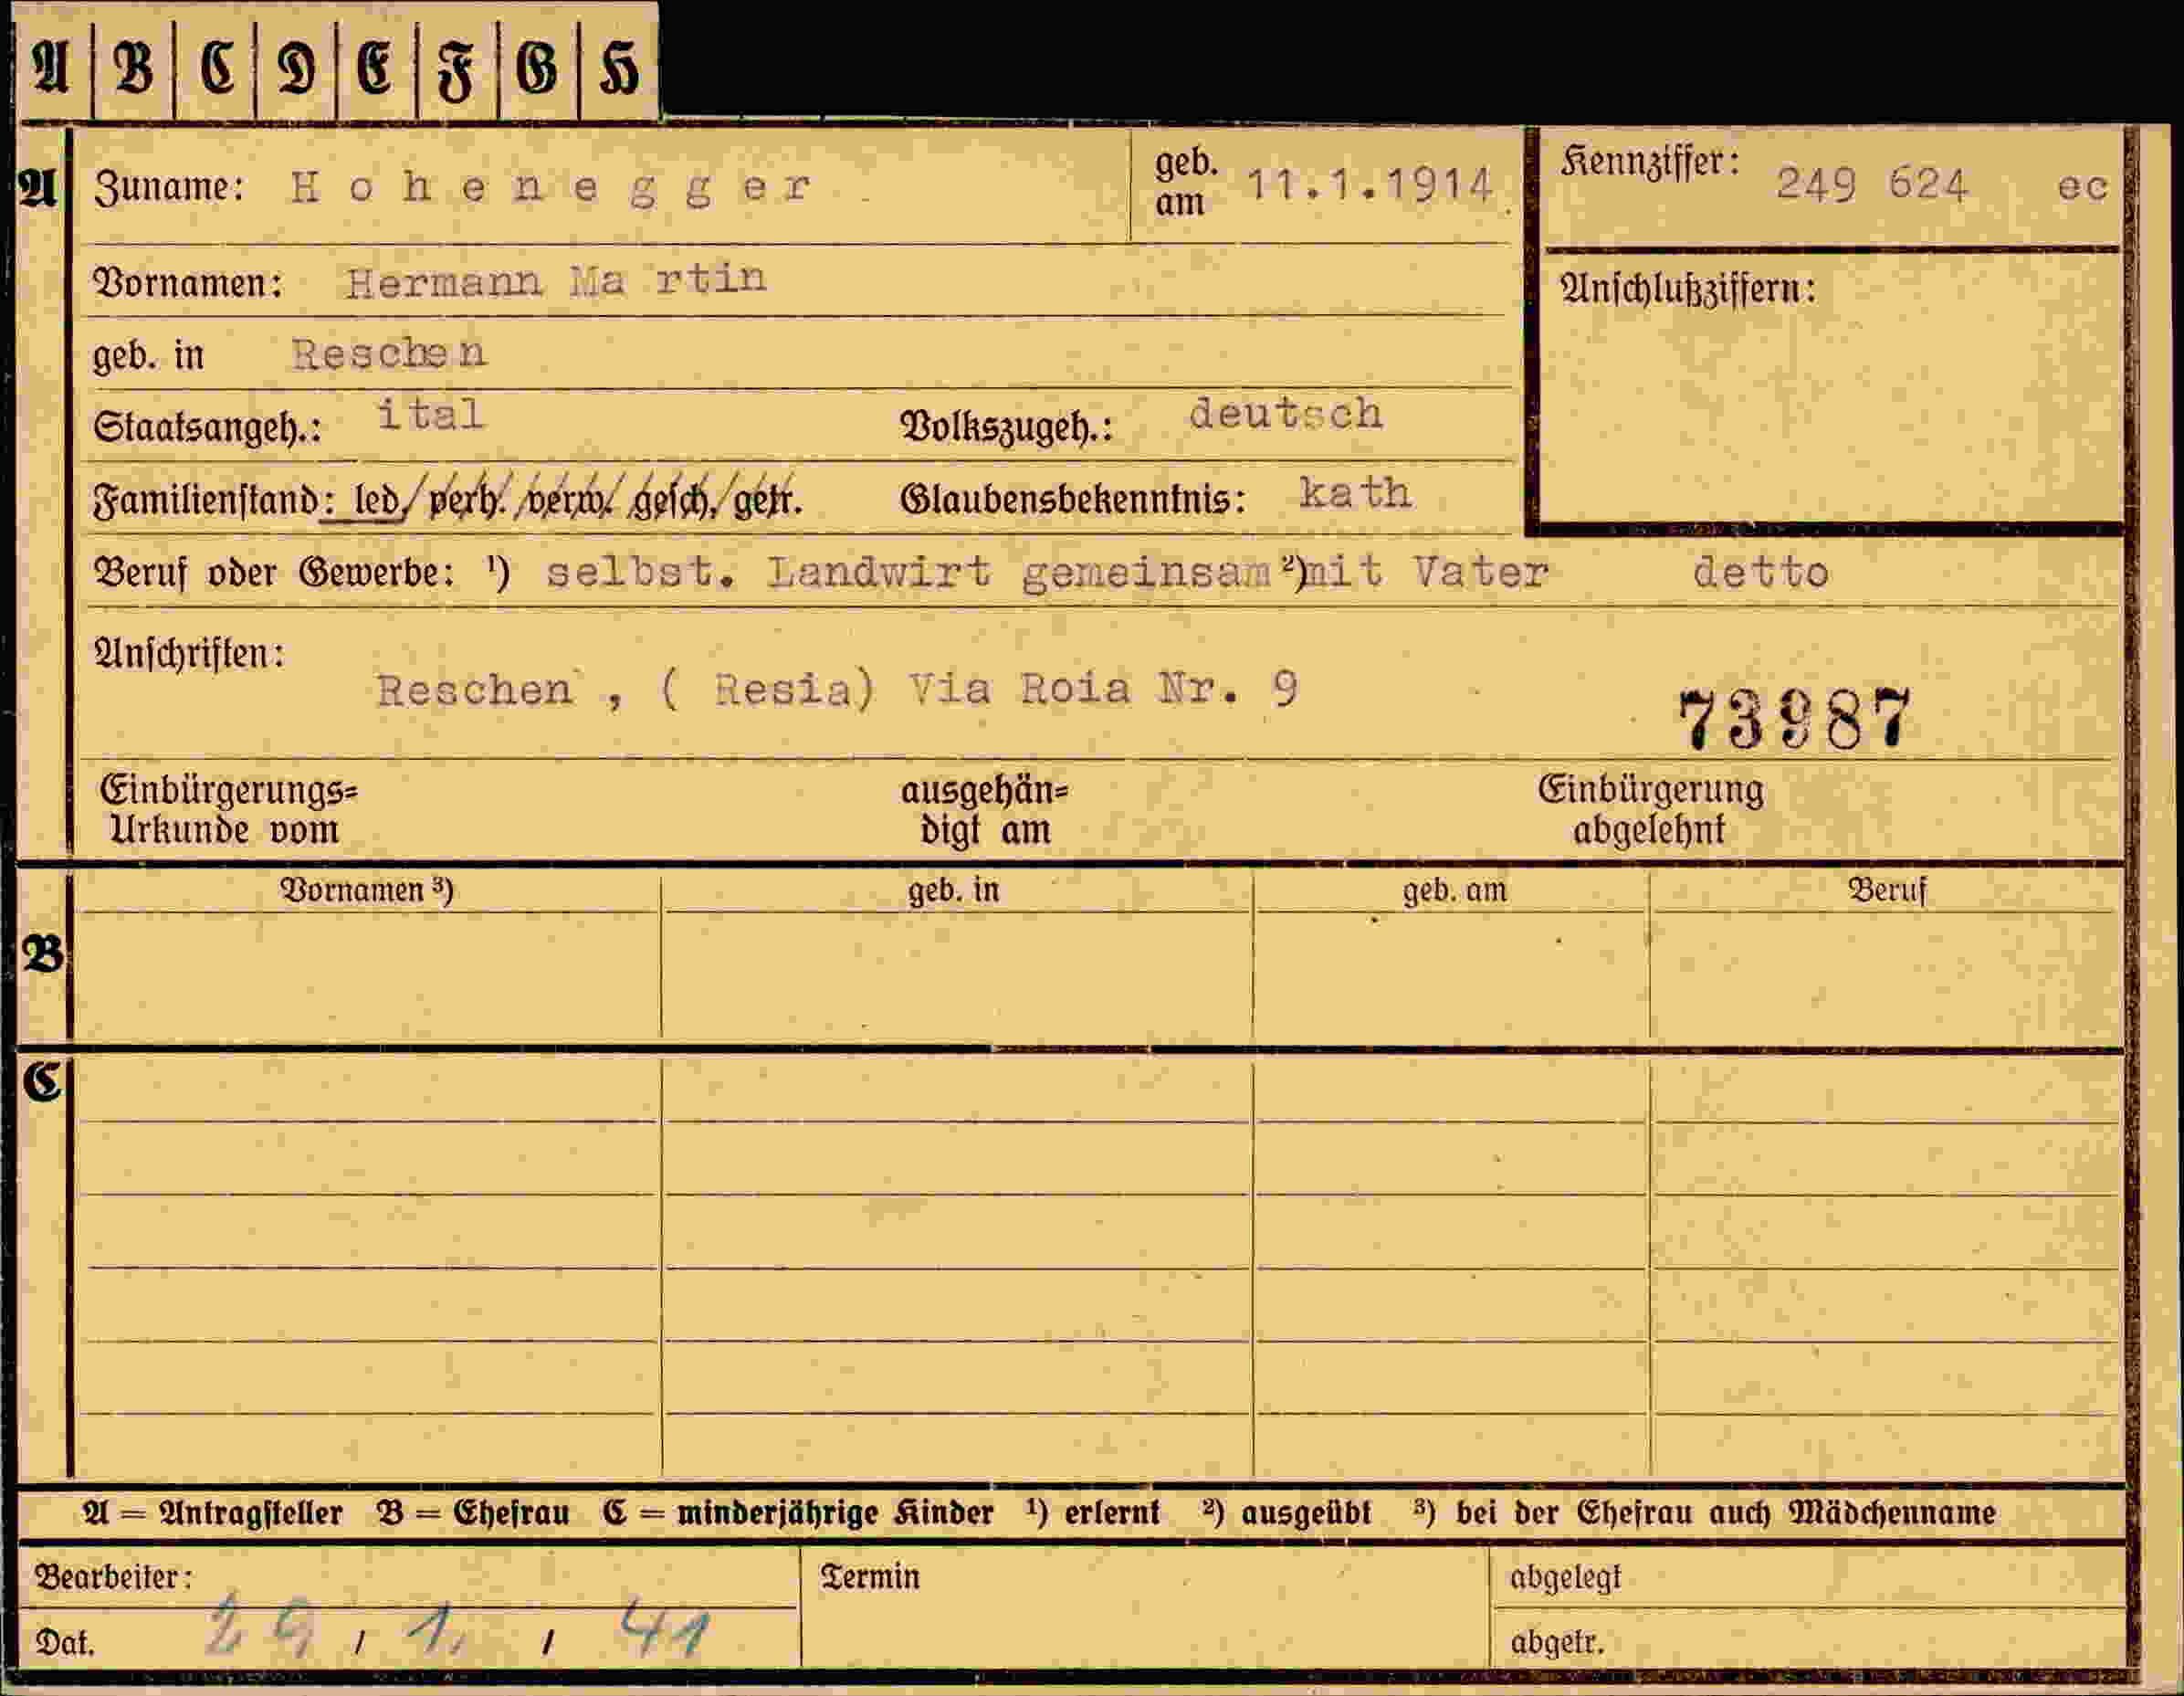 A B C D E F G H
A Zuname: Hohenegger geb. am 11.1.1914. Kennziffer: 249 624 ec
Vornamen: Hermann Ma rtin Anschlußziffern:
geb. in Reschen
Staatsangeh.: ital Volkszugeh.: deutsch
Familienstand: led/ verh. /verw/ gesch,/ getr. Glaubensbekenntnis: kath
Beruf oder Gewerbe: ¹) selbst. Landwirt gemeinsam ²)mit Vater detto
Anschriften:
Reschen , ( Resia) Via Roia Nr. 9
73987
Einbürgerungs= ausgehän= Einbürgerung
Urkunde vom digt am abgelehnt
Vornamen ³) geb. in geb. am Beruf
B
C
A = Antragsteller B = Ehefrau C = minderjährige Kinder ¹) erlernt ²) ausgeübt ³) bei der Ehefrau auch Mädchenname
Bearbeiter: Termin abgelegt
Dat. 29 / 1. / 41 abgetr.